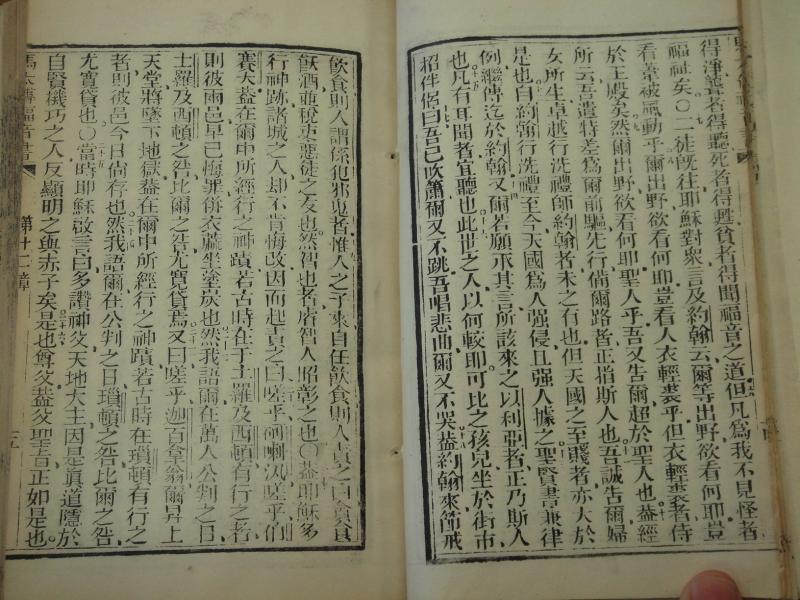 得淨聾者得聽死者得甦貧者得聞福音之道但凡為我不見怪者
福祉矣〇二徒旣往耶穌對衆言及約翰云爾等出野欲看何耶豈
看葦被風動乎爾出野欲看何耶豈看人衣輕裘乎但衣輕裘者侍
於王殿矣然爾出野欲看何耶聖人乎吾又告爾超於聖人也蓋經
所云吾遣特差為爾前驅先行備爾路皆正指斯人也吾誠告爾婦
女所生卓越行洗禮師約翰者未之有也但天國之至賤者亦大於
是也自約翰行洗禮至今天國為人强侵且强人據之聖賢書兼律
例繼傳迄於約翰又爾若願承其言所該來之以利亞者正乃斯人
也凡有耳聞者宜聽也此世之人以何較耶可比之孩兒坐於街市
招伴侶曰吾已吹簫爾又不跳吾唱悲曲爾又不哭蓋約翰來節戒
飲食則人謂係犯邪鬼者惟人之子來自任飲食則人責之曰貪食
飲酒並稅吏惡徒之友也然智也者處智人昭彰之也〇蓋耶穌多
行神跡諸城之人却不肯悔改因而起責之曰嗟乎
蓋在爾中所經行之神蹟若古時在于土羅及西頓有行之者
則彼兩邑早已悔罪併衣蔴坐塗炭也然我語爾在萬人公判之日
士羅及西頓之咎比爾之咎尤寬貸焉又曰嗟乎迦百拿翁爾昇上
天堂將墜下地獄蓋在爾中所經行之神蹟若古時在瑣頓有行之
者則彼邑今日尙存也然我語爾在公判之日瑣頓之咎比爾之咎
尤寬貸也〇當時耶穌啟言曰多讚神父天地大主因是眞道隱於
自賢機巧之人反顯明之與赤子矣是也尊父蓋父聖旨正如是也
馬太傳福音書 第十一章